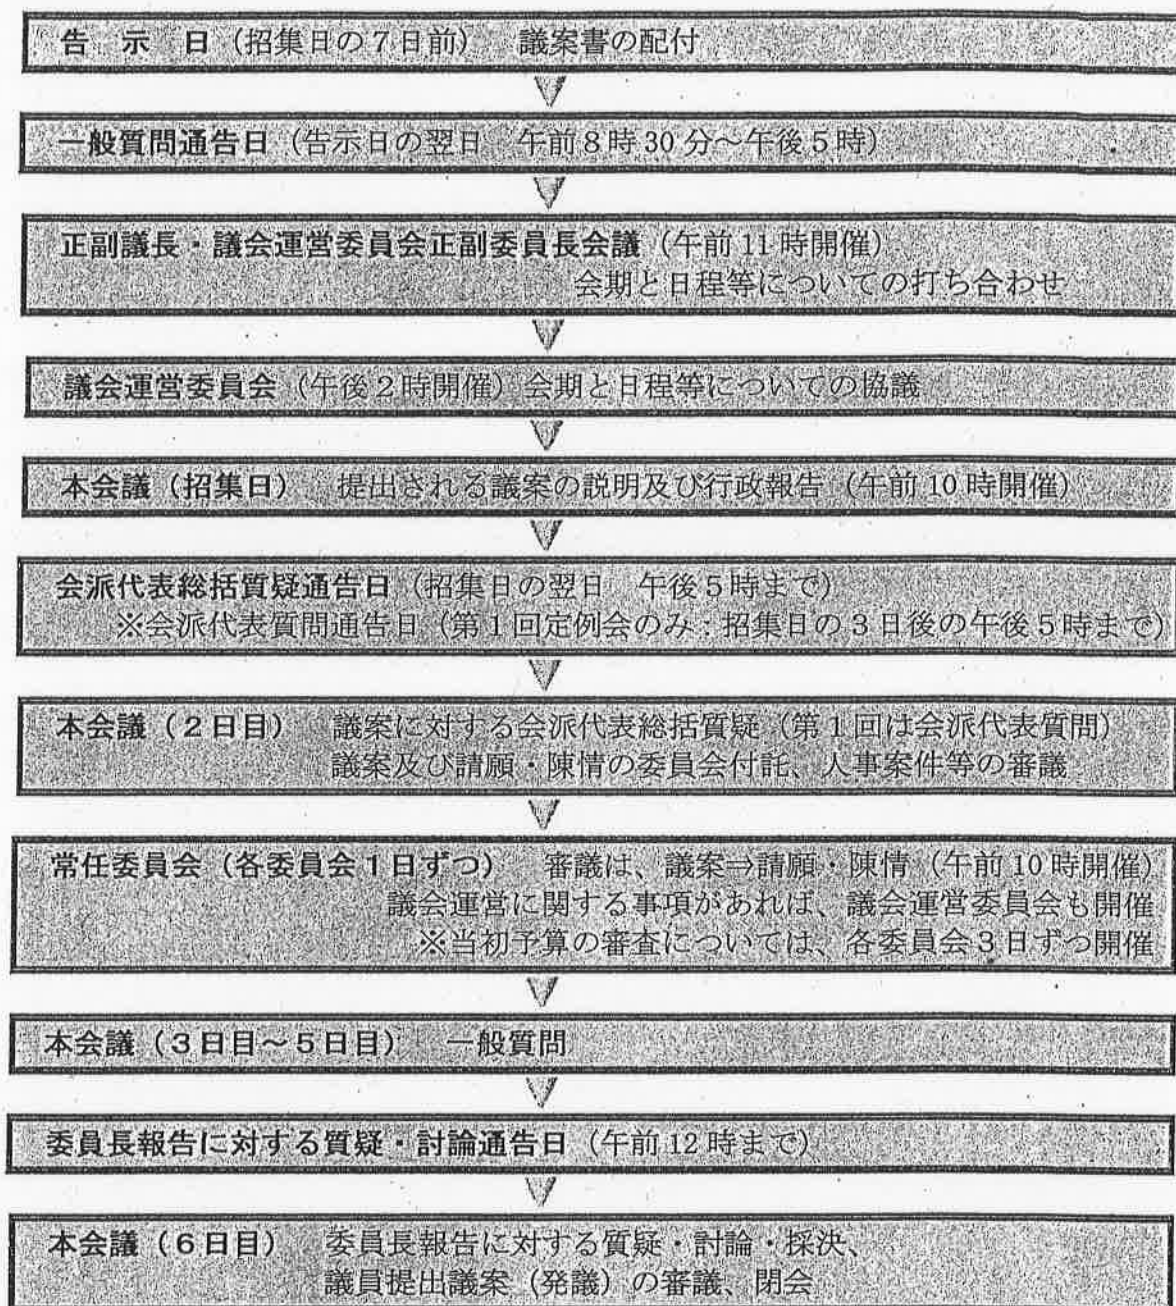 告　示　日（招集日の７日前）　議案書の配付
一般質問通告日（告示日の翌日　午前８時30分～午後５時）
正副議長・議会運営委員会正副委員長会議（午前11時開催）
会期と日程等についての打ち合わせ
議会運営委員会（午後２時開催）会期と日程等についての協議
本会議（招集日）　提出される議案の説明及び行政報告（午前10時開催）
会派代表総括質疑通告日（招集日の翌日　午後５時まで）
※会派代表質問通告日（第１回定例会のみ：招集日の３日後の午後５時まで）
本会議（２日目）　議案に対する会派代表総括質疑（第１回は会派代表質問）
議案及び請願・陳情の委員会付託、人事案件等の審議
常任委員会（各委員会１日ずつ）　審議は、議案⇒請願・陳情（午前10時開催）
議会運営に関する事項があれば、議会運営委員会も開催
※当初予算の審査については、各委員会３日ずつ開催
本会議（３日目～５日目）　一般質問
委員長報告に対する質疑・討論通告日（午前12時まで）
本会議（６日目）　委員長報告に対する質疑・討論・採決、
議員提出議案（発議）の審議、閉会